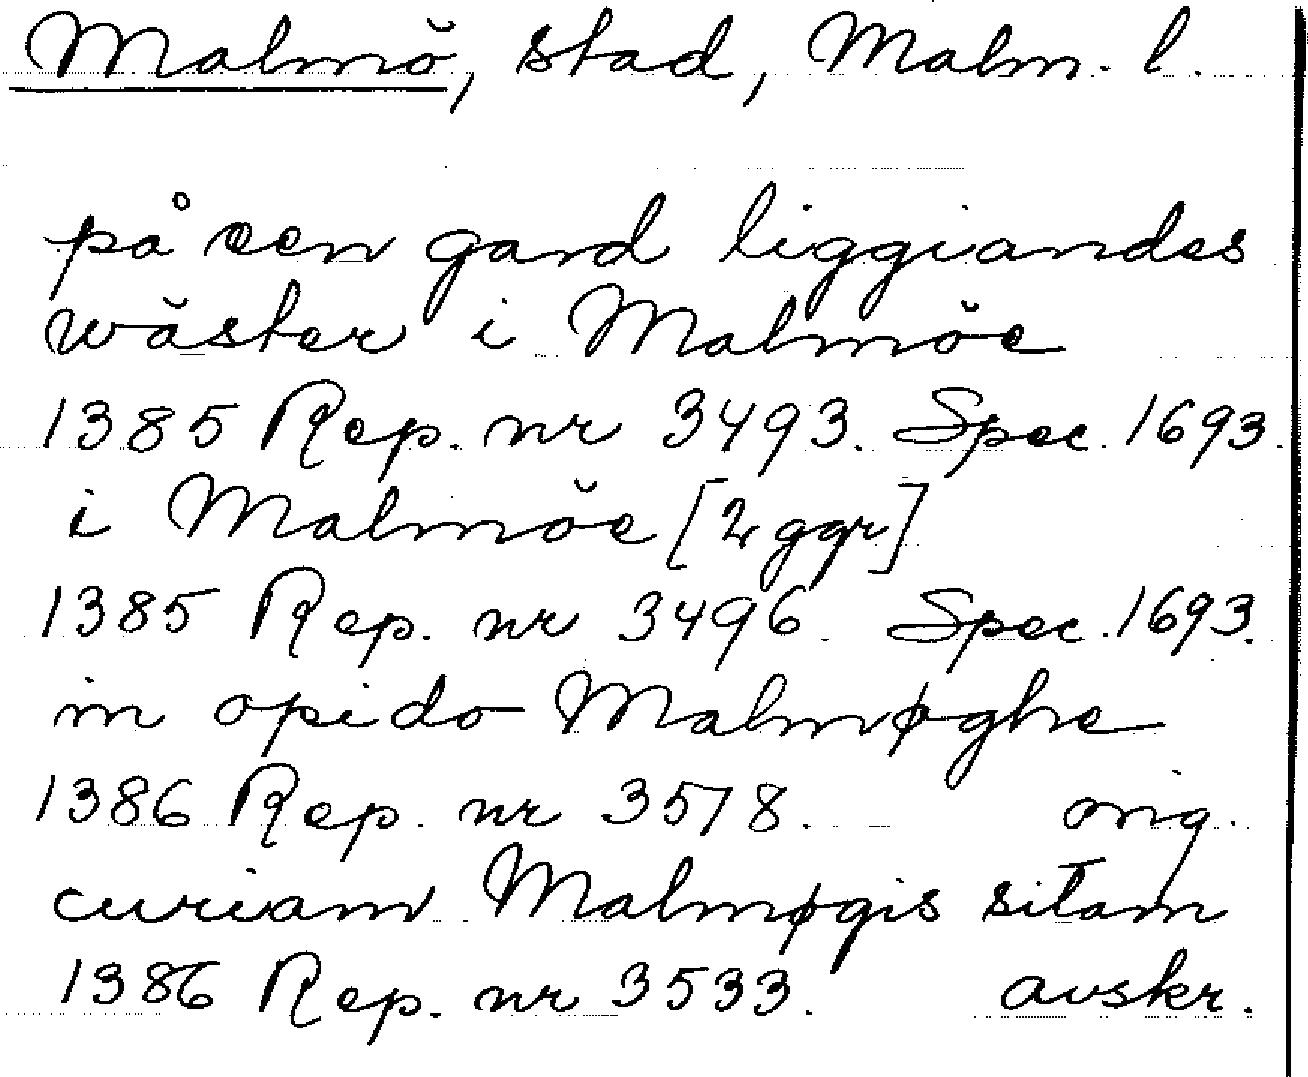 Malmö, stad, Malm. l.
på een gard liggiandes
wäster i Malmöe
1385 Rep. nr 3493. Spec. 1693.
i Malmöe [2 ggr]
1385 Rep. nr 3496. Spec. 1693.
in opido Malmøghe
1386 Rep. nr 3578. orig.
curiam Malmøgis sitam
1386 Rep. nr 3533. avskr.